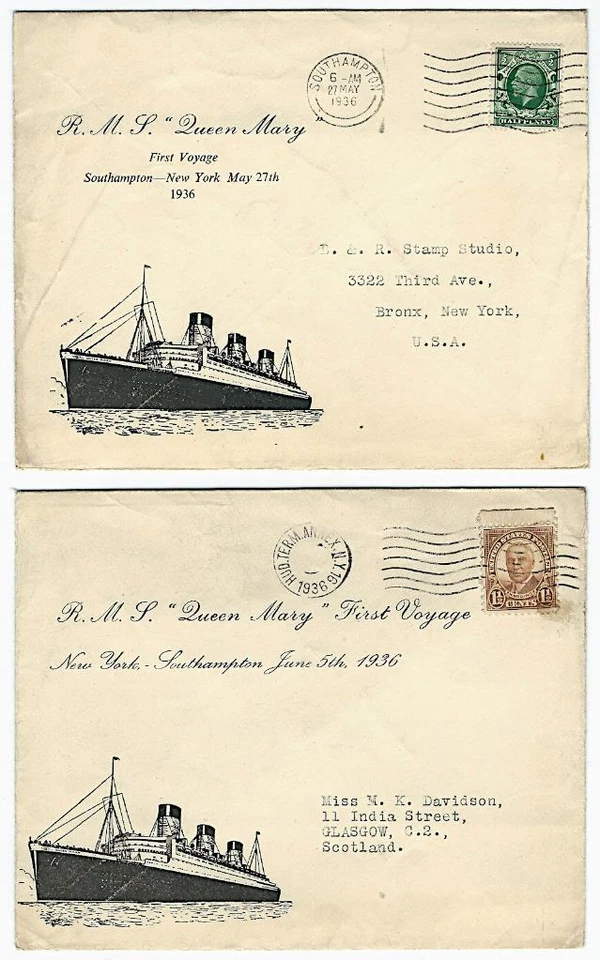 SOUTHAMPTON
6 - AM
27 MAY
1936
½ ½
HALFPENNY
R. M. S. "Queen Mary"
First Voyage
Southampton—New York May 27th
1936
D. & R. Stamp Studio,
3322 Third Ave.,
Bronx, New York,
U.S.A.
HUD. TERM. ANNEX. N.Y. 16
1936
UNITED STATES POSTAGE
1½ 1½
CENTS
R. M. S. "Queen Mary" First Voyage
New York, - Southampton June 5th, 1936
Miss M. K. Davidson,
11 India Street,
GLASGOW, C.2.,
Scotland.